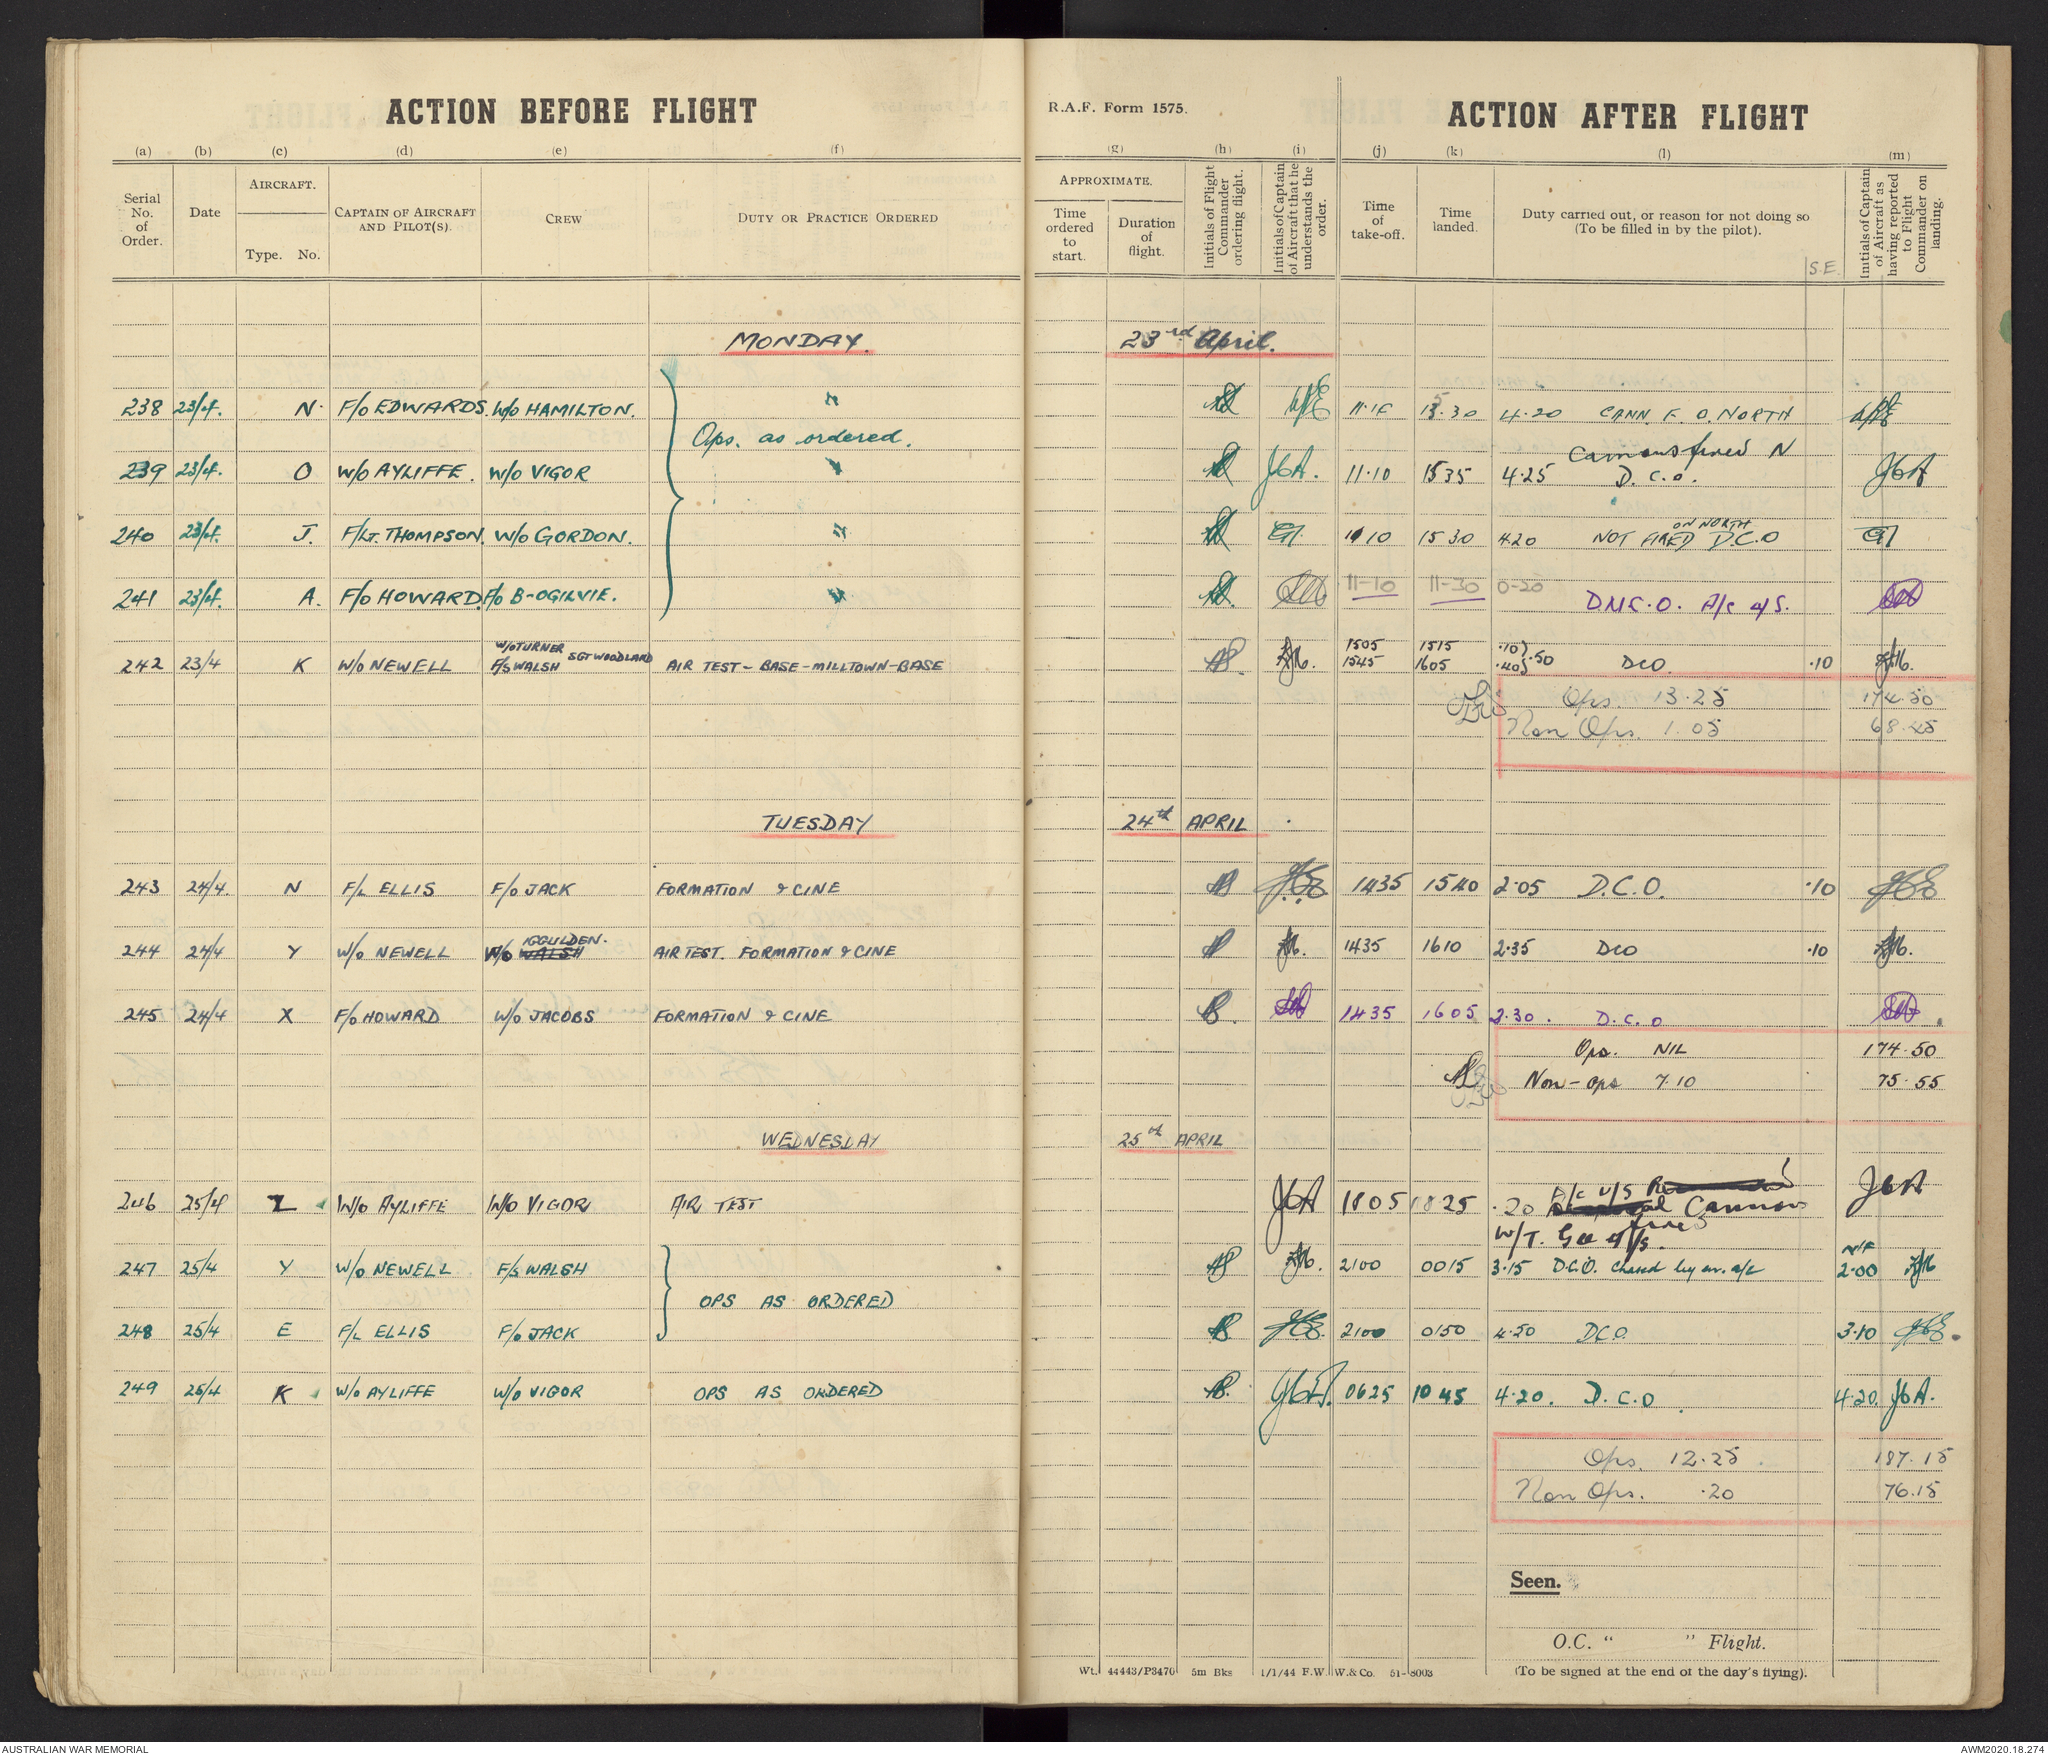 ACTION BEFORE FLIGHT
R.A.F. Form 1575.
ACTION AFTER FLIGHT
(a) (b) (c) (d) (e) (f) (g) (h) (i) (j) (k) (l) (m)
Serial No. of Order.
Date
AIRCRAFT.
Type. No.
CAPTAIN OF AIRCRAFT AND PILOT(S).
CREW
DUTY OR PRACTICE ORDERED
APPROXIMATE.
Time ordered to start.
Duration of flight.
Initials of Flight Commander ordering flight.
Initials of Captain of Aircraft that he understands the order.
Time of take-off.
Time landed.
Duty carried out, or reason for not doing so
(To be filled in by the pilot).
S.E.
Initials of Captain of Aircraft as having reported to Flight Commander on landing.
MONDAY. 23rd April.
238 23/4. N. F/O EDWARDS. W/O HAMILTON. " 15.30 4.20 CANN. F. O. NORTH
Ops. as ordered.
Cannons fired N
239 23/4. O W/O AYLIFFE. W/O VIGOR " JGA. 11.10 1535 4.25 D.C.O. JGA
ON NORTH
240 23/4. J. F/LT. THOMPSON. W/O GORDON. " 1110 1530 4.20 NOT FIRED D.C.O
241 23/4. A. F/O HOWARD F/O B-OGILVIE. " 11-10 11-30 0-20 D.N.C.O. A/c u/s.
W/O TURNER 1505 1515 .10
242 23/4 K W/O NEWELL F/S WALSH SGT WOODLAND AIR TEST - BASE - MILLTOWN - BASE 1545 1605 .40 .50 DCO .10
Ops. 13.25 174.50
Non Ops. 1.05 68.45
TUESDAY 24th APRIL
243 24/4. N F/L ELLIS F/O JACK FORMATION & CINE 1435 1540 2.05 D.C.O. .10
IGGULDEN.
244 24/4 Y W/O NEWELL W/O WALSH AIR TEST. FORMATION & CINE 1435 1610 2.35 DCO .10
245 24/4 X F/O HOWARD W/O JACOBS FORMATION & CINE 1435 1605 2.30. D.C.O
Ops. NIL 174.50
Non-ops 7.10 75.55
WEDNESDAY 25th APRIL
A/c u/s
246 25/4 Z W/O AYLIFFE W/O VIGOR AIR TEST JGA 1805 1825 .20 Cannons JGA
fired
W/T. Gee u/s.
N/F
247 25/4 Y W/O NEWELL F/S WALSH 2100 0015 3.15 D.C.O. Chased by en. a/c 2.00
OPS AS ORDERED
248 25/4 E F/L ELLIS F/O JACK 2100 0150 4.50 DCO. 3.10
249 25/4 K W/O AYLIFFE W/O VIGOR OPS AS ORDERED 0625 1045 4.20. D.C.O 4.20. JGA.
Ops. 12.25 187.15
Non Ops. .20 76.15
Seen.
O.C. " " Flight.
Wt. 44443/P3470 5m Bks 1/1/44 F.W. W.& Co. 51-8003
(To be signed at the end of the day's flying).
AUSTRALIAN WAR MEMORIAL
AWM2020.18.274